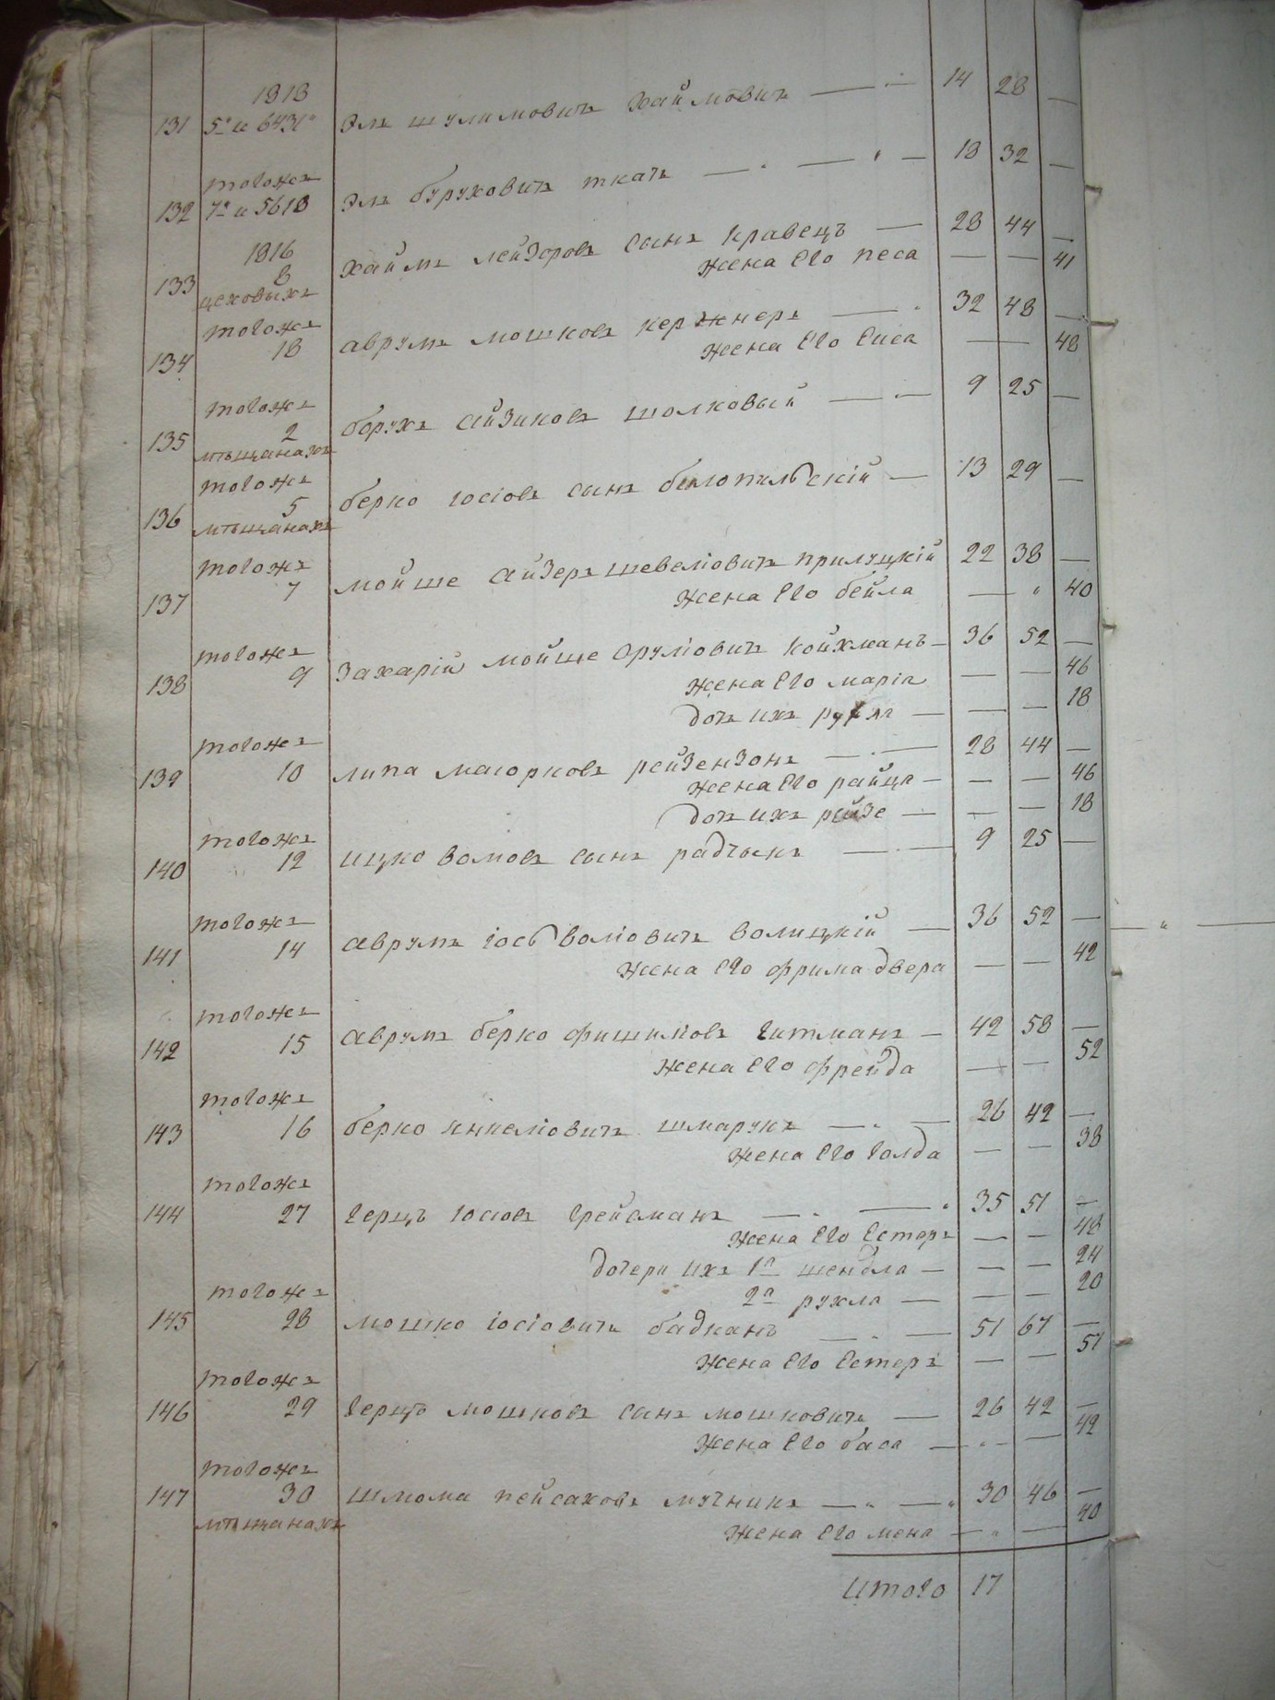 1818
131 5ю и 6431ю Эль Шулимовичъ Хаймовичъ — 14 28 —
тогожъ
132 7ю и 5618 Эль Буруховичъ Ткачъ — 18 32 —
1816
133 8 Хаймъ Лейзоровъ сынъ Кравецъ — 28 44 —
цеховыхъ Жена его Песа — — 41
тогожъ
134 18 Аврумъ Мошковъ Кержнеръ — 32 48 —
Жена его Сиса — 48
тогожъ
135 2 Борухъ Айзиковъ Шолковый — 9 25 —
мѣщанахъ
тогожъ
136 5 Берко Іосіовъ сынъ Белопильскій — 13 29 —
мѣщанахъ
тогожъ
137 7 Мойше Айзеръ Шевеліовичъ Прилуцкій 22 38 —
Жена его Бейла — 40
тогожъ
138 9 Захарій Мойше Сруліовичъ Койхманъ — 36 52 —
Жена его Марія — — 46
дочь ихъ — — — 18
тогожъ
139 10 Липа Маіорковъ Рейзензонъ — 28 44 —
Жена его Райца — — — 46
дочь ихъ Рейзе — — — 18
тогожъ
140 12 Ицко Волковъ сынъ — 9 25 —
тогожъ
141 14 Аврумъ Іось Воліовичъ Волицкій — 36 52 —
Жена его Фрима Двера — — 42
тогожъ
142 15 Аврумъ Берко Фишиліовъ Гитманъ — 42 58 —
Жена его Фрейда — — 52
тогожъ
143 16 Берко Янкеліовичъ Шмарукъ — 26 42 —
Жена его Голда — — 38
тогожъ
144 27 Герцъ Іосіовъ Грейсманъ — 35 51 —
Жена его Естеръ — — 48
дочери ихъ 1я Шендла — — — 24
тогожъ 2я Рухля — — — 20
145 28 Мошко Іосіовичъ Бадканъ — 51 67 —
Жена его Естеръ — — 51
тогожъ
146 29 Герцъ Мошковъ сынъ Мошковичъ — 26 42 —
Жена его Бася — — 42
тогожъ
147 30 Шлома Пейсаховъ Мучникъ — 30 46 —
мѣщанахъ Жена его Мена — — 40
Итого 17